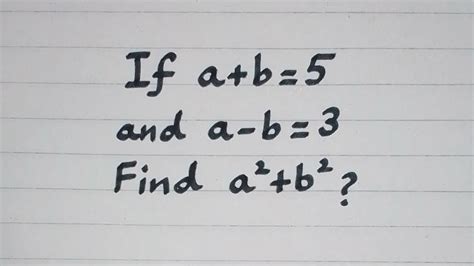 If a+b=5
and a-b=3
Find a²+b²?